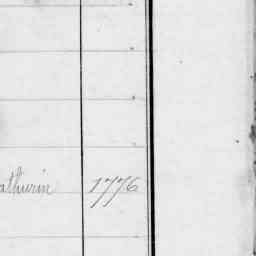 athurin 1776